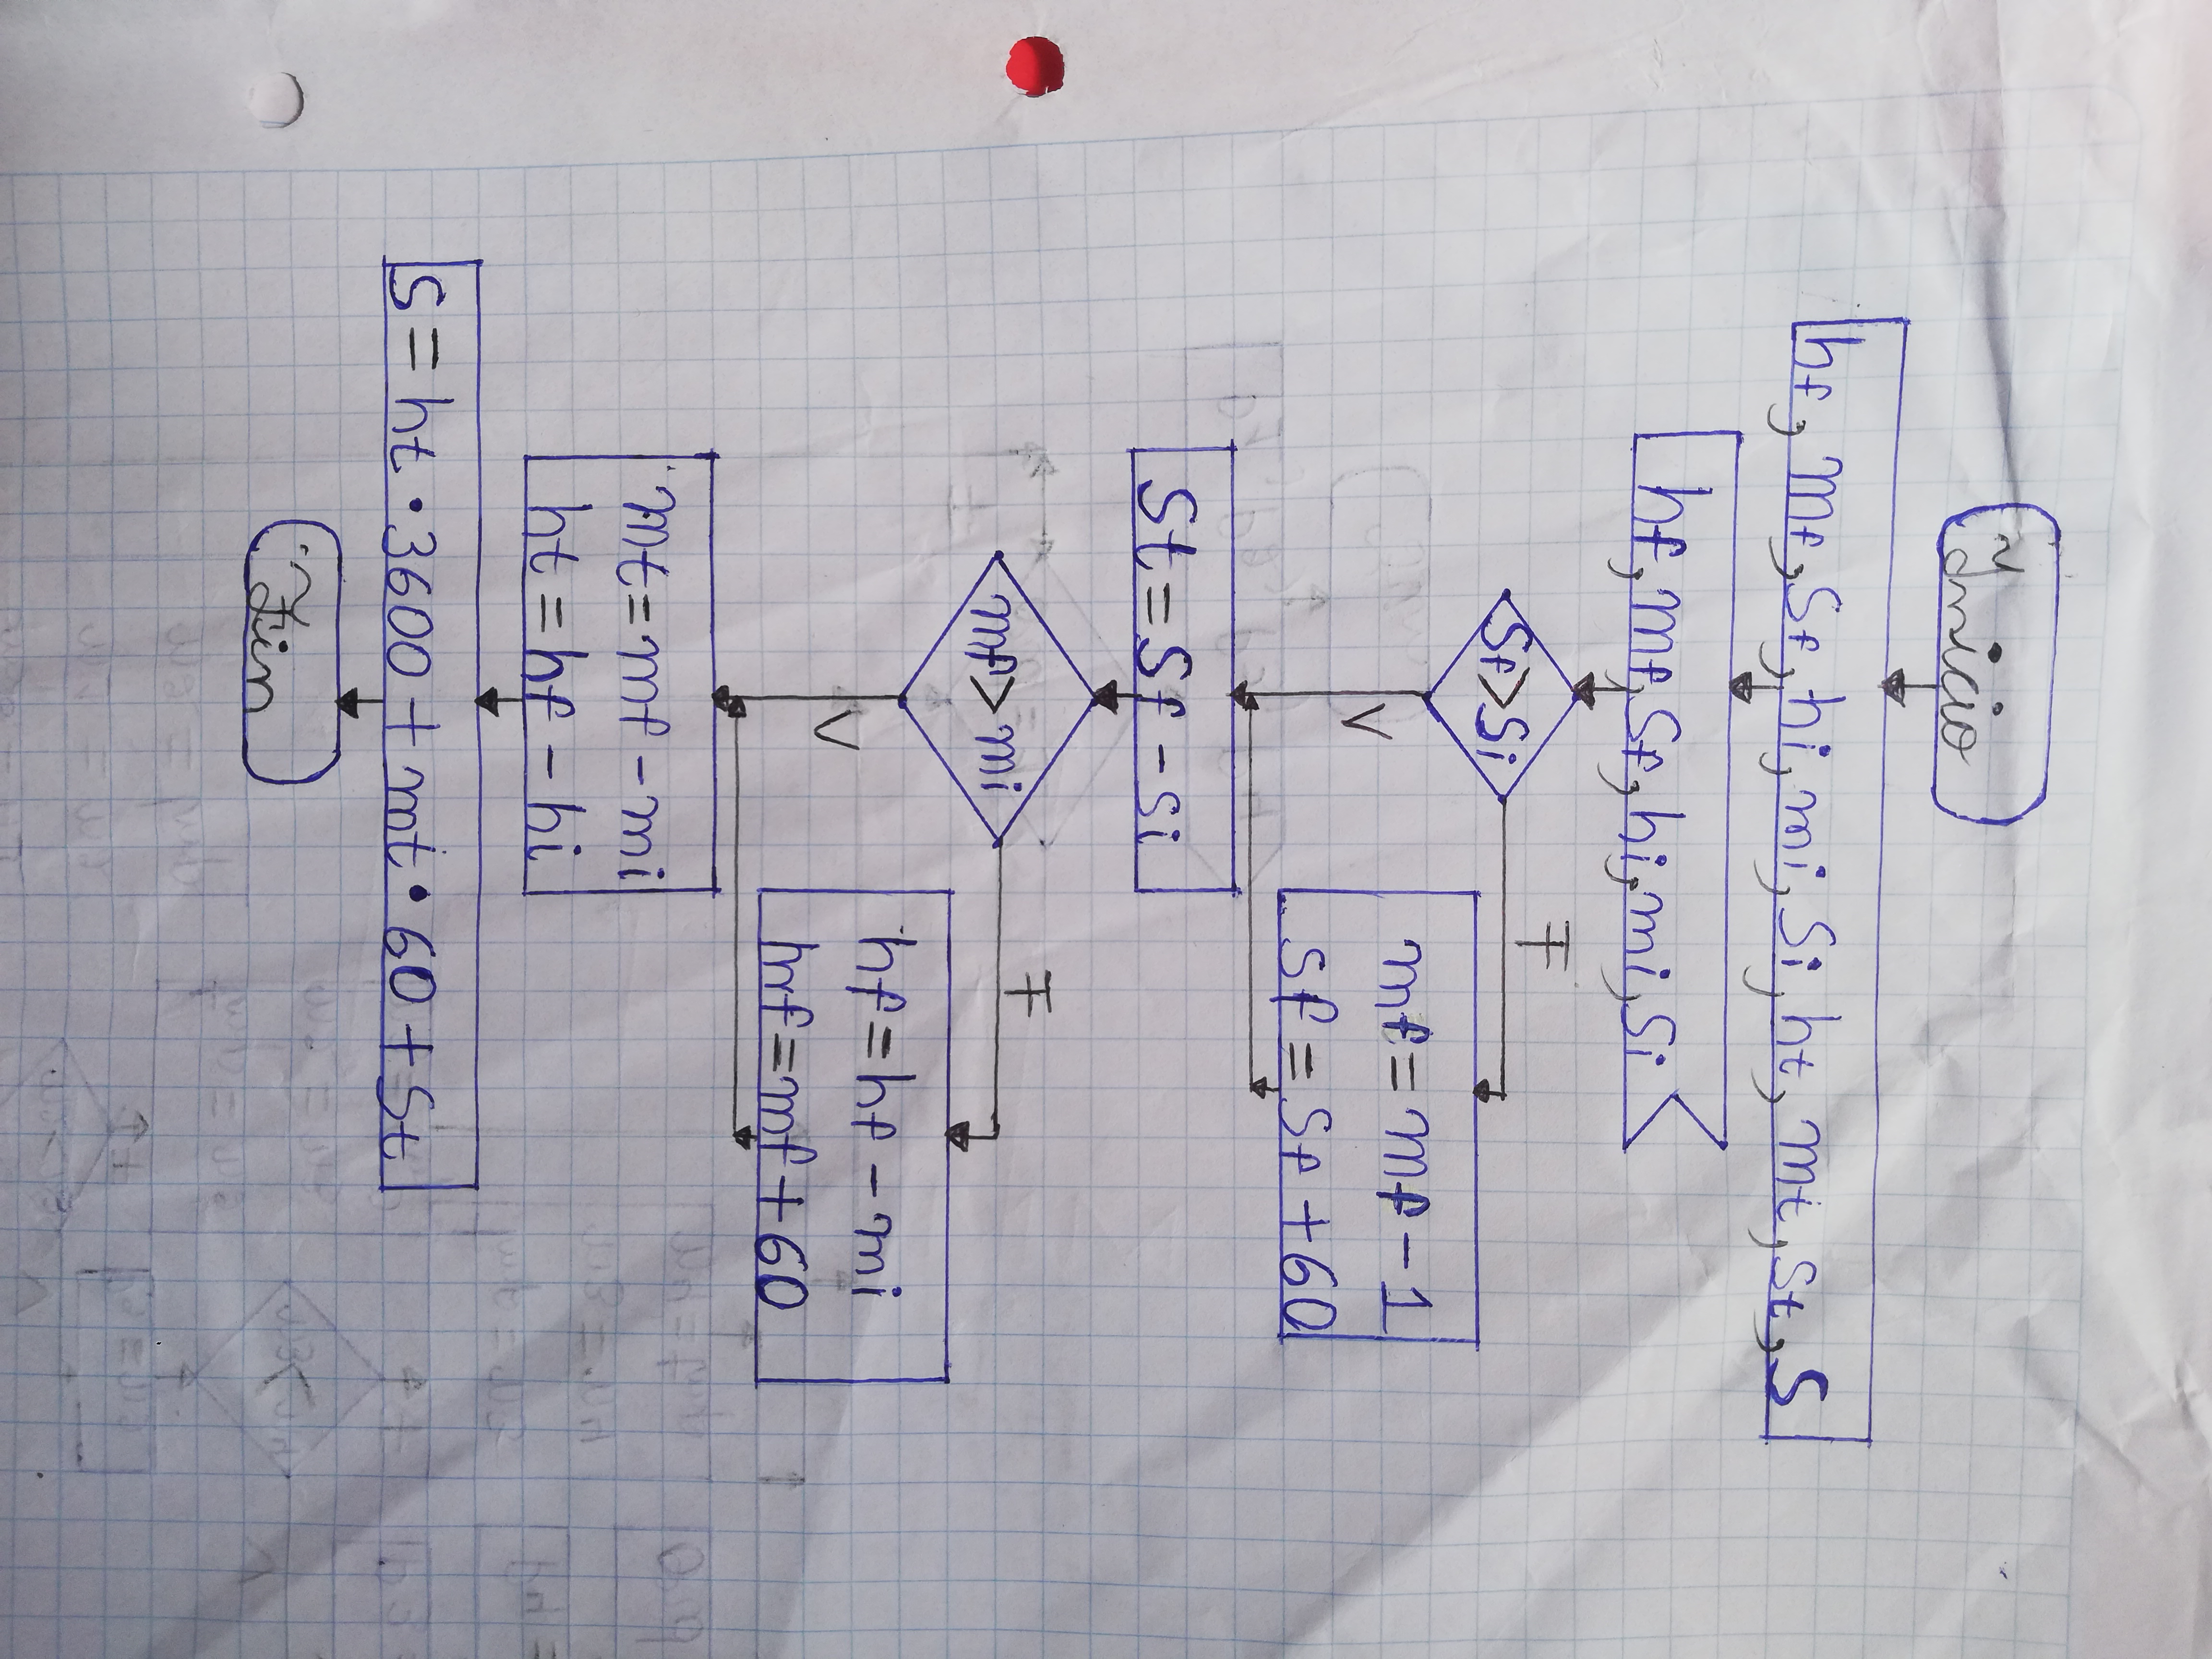 Inicio
hf, mf, sf, hi, mi, si, ht, mt, st, s
hf, mf, sf, hi, mi, si
sf > si
F
V
mf = mf - 1
sf = sf + 60
st = sf - si
mf > mi
F
V
hf = hf - mi
mf = mf + 60
mt = mf - mi
ht = hf - hi
s = ht · 3600 + mt · 60 + st
Fin